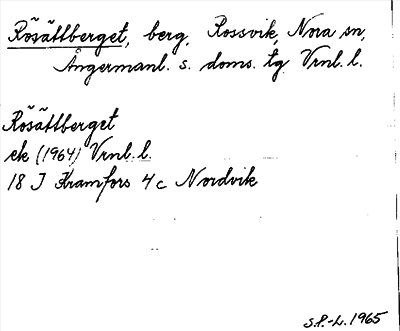 Rösåttberget, berg, Rossvik, Nora sn,
Ångermanl. s. doms. tg Vrnl. l.
Rösåttberget
ek (1964) Vrnl. l.
18 J Kramfors 4 c Nordvik
S.P.-L. 1965